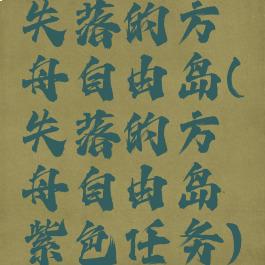 失落的方
舟自由岛(
失落的方
舟自由岛
紫色任务)